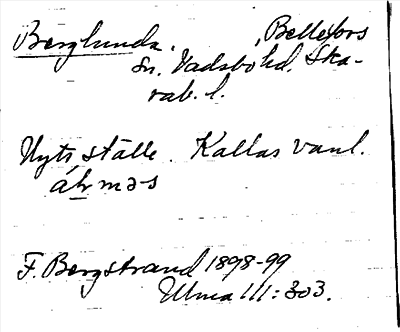 Berglunda. , Bellefors
Sn. Vadsbo hd. Ska-
rab. l.
Nytt ställe. Kallas vanl.
F. Bergstrand 1898-99
Ulma 111:303.